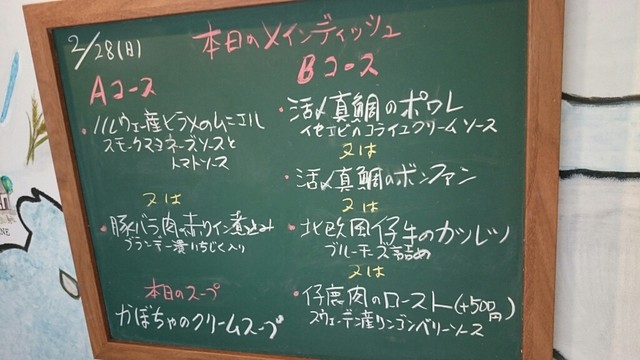 2/28(日)
本日のメインディッシュ
Aコース
・ノルウェー産ヒラメのムニエル
スモークマヨネーズソースと
トマトソース
又は
・豚バラ肉の赤ワイン煮込み
ブランデー漬いちじく入り
本日のスープ
かぼちゃのクリームスープ
Bコース
・活〆真鯛のポワレ
イセエビのコライユクリームソース
又は
・活〆真鯛のボンファン
又は
・北欧風仔牛のカツレツ
ブルーチーズ詰め
又は
・仔鹿肉のロースト(+500円)
スウェーデン産リンゴンベリーソース